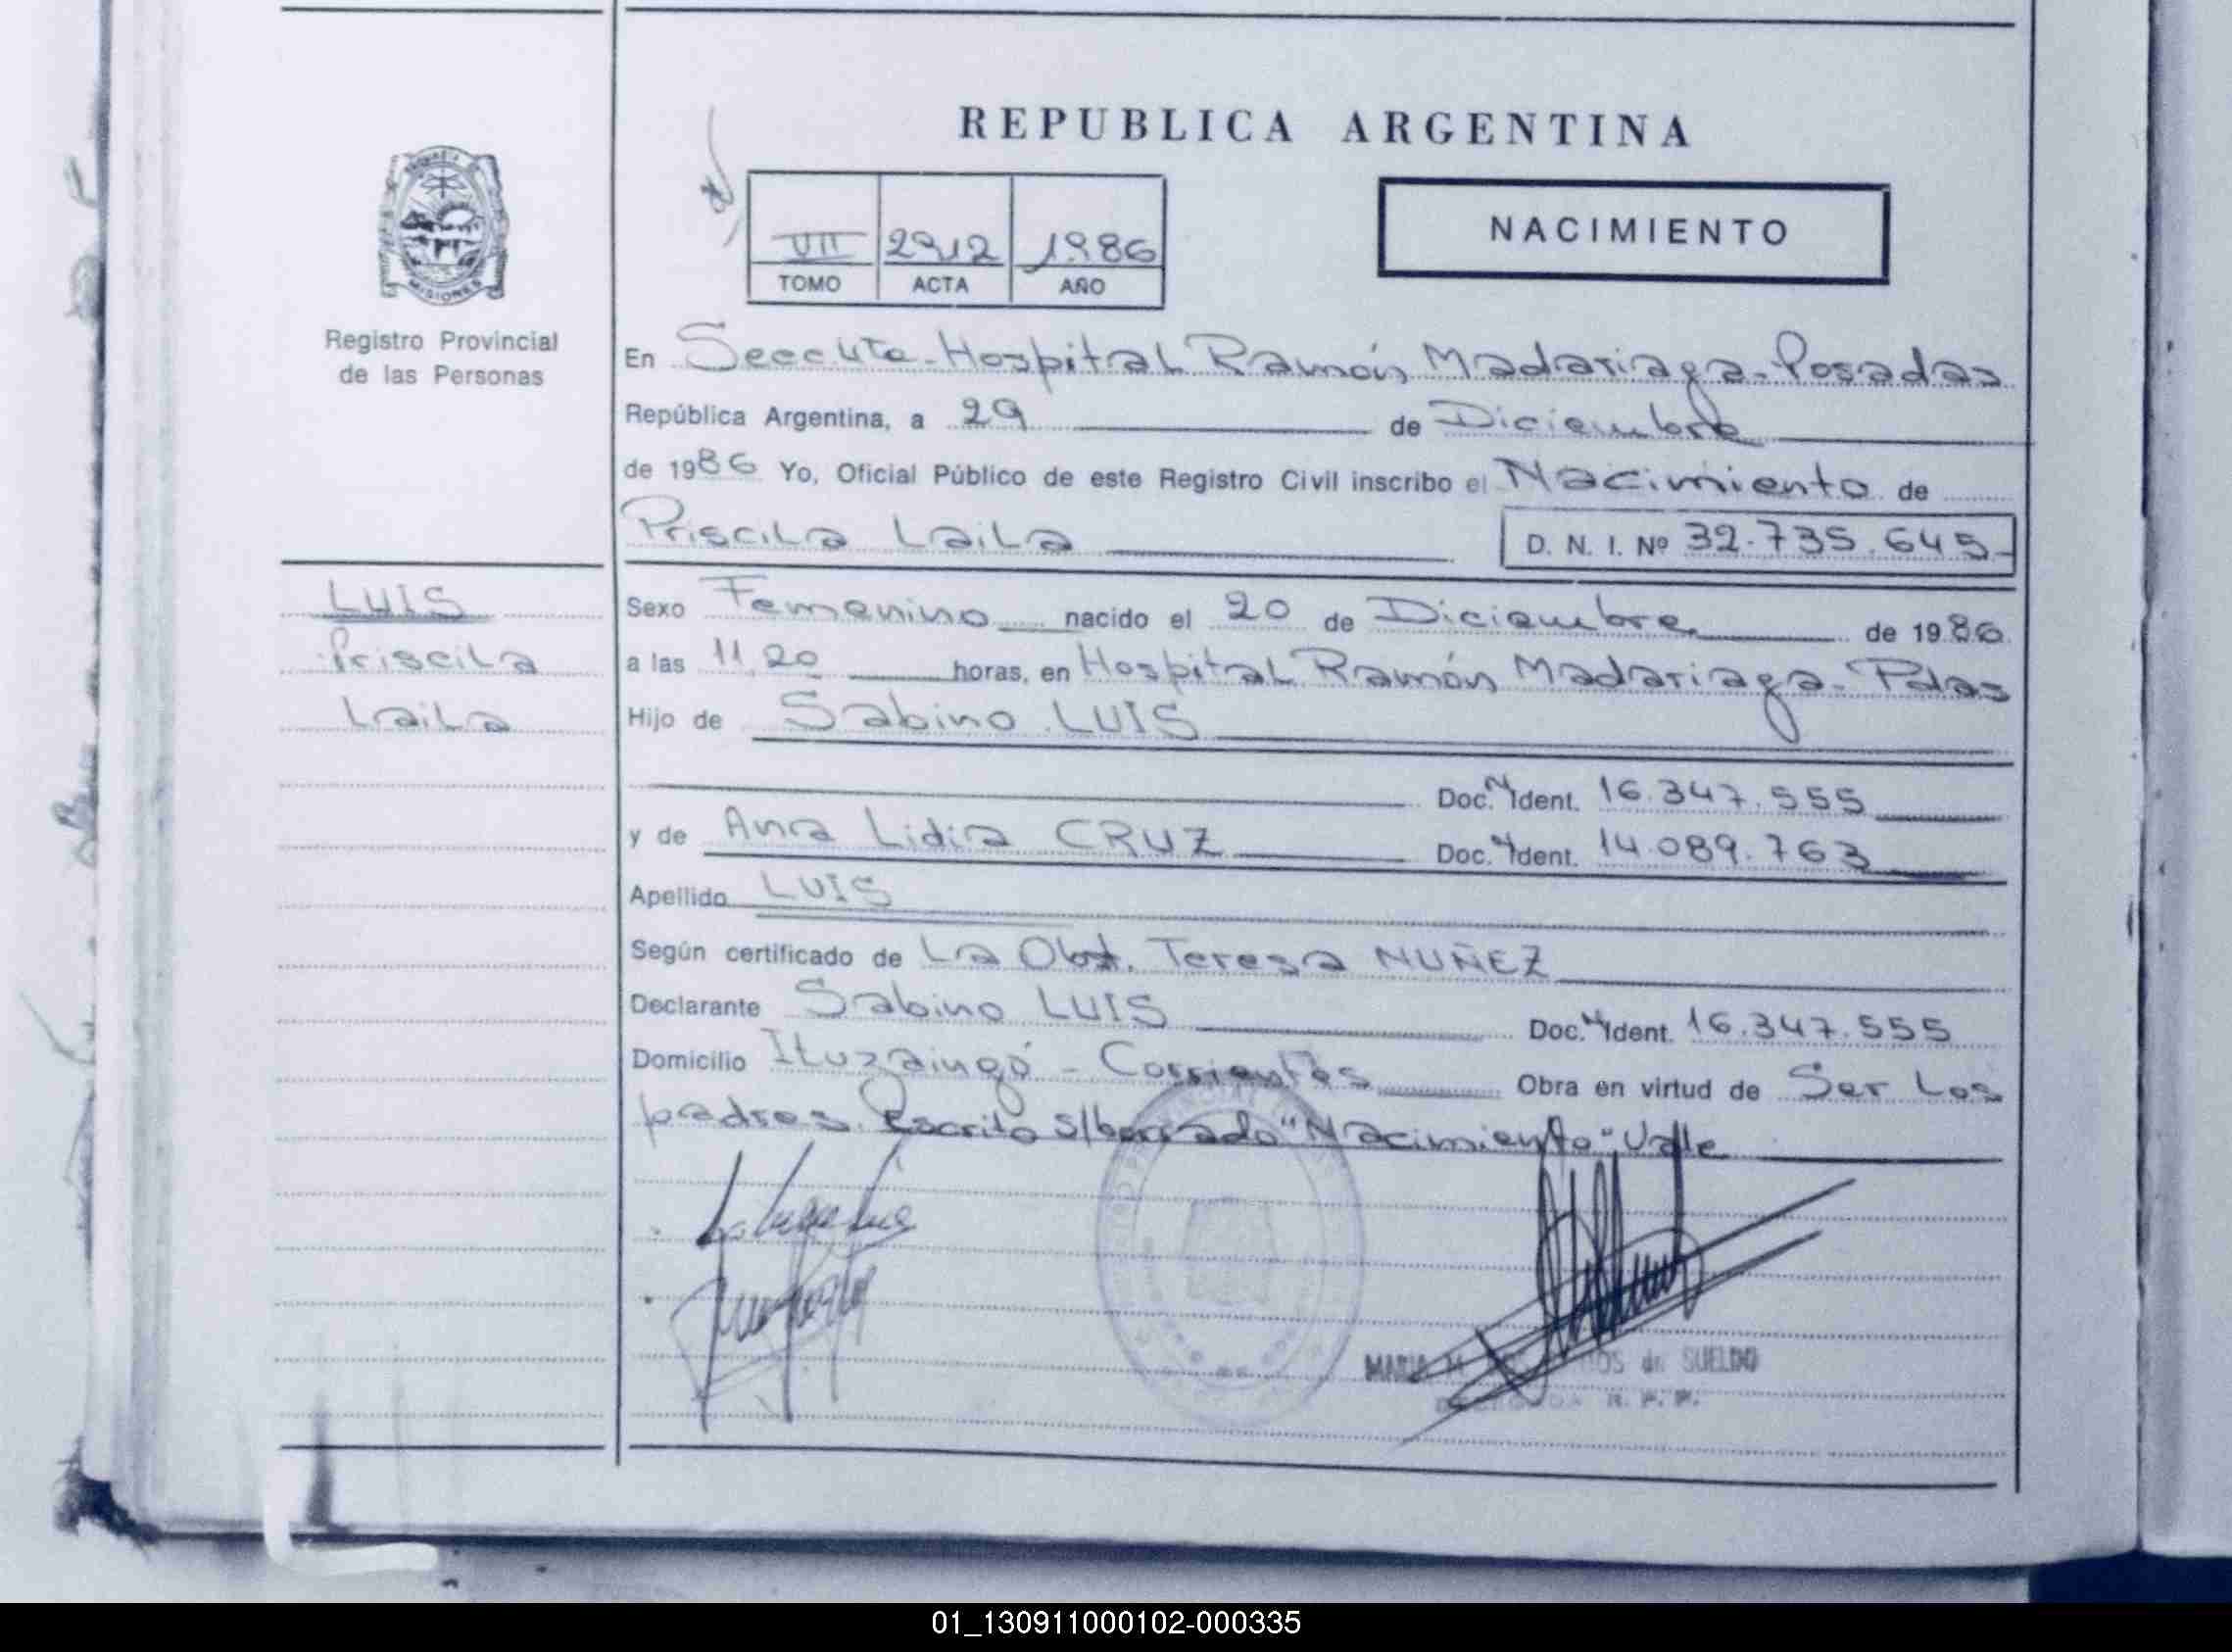 REPUBLICA ARGENTINA
NACIMIENTO
VII 2912 1986
TOMO ACTA AÑO
MISIONES
Registro Provincial
de las Personas
En Hospital Ramón Madariaga-Posadas
República Argentina, a 29 de Diciembre
de 1986 Yo, Oficial Público de este Registro Civil inscribo el Nacimiento de
Priscila Laila D. N. I. Nº 32.735.645
LUIS
Priscila
Laila
Sexo Femenino nacido el 20 de Diciembre de 1986
a las 11,20 horas, en Hospital Ramón Madariaga-Pdas
Hijo de Sabino LUIS
Doc. N Ident. 16.347.555
y de Ana Lidia CRUZ Doc. N Ident. 14.089.763
Apellido LUIS
Según certificado de La Obst. Teresa NUÑEZ
Declarante Sabino LUIS Doc. N Ident. 16.347.555
Domicilio Ituzaingó - Corrientes Obra en virtud de Ser Los
padres. Escrito s/borrado "Nacimiento" Valle
MARIA de SUELDO
R. P. P.
01_130911000102-000335